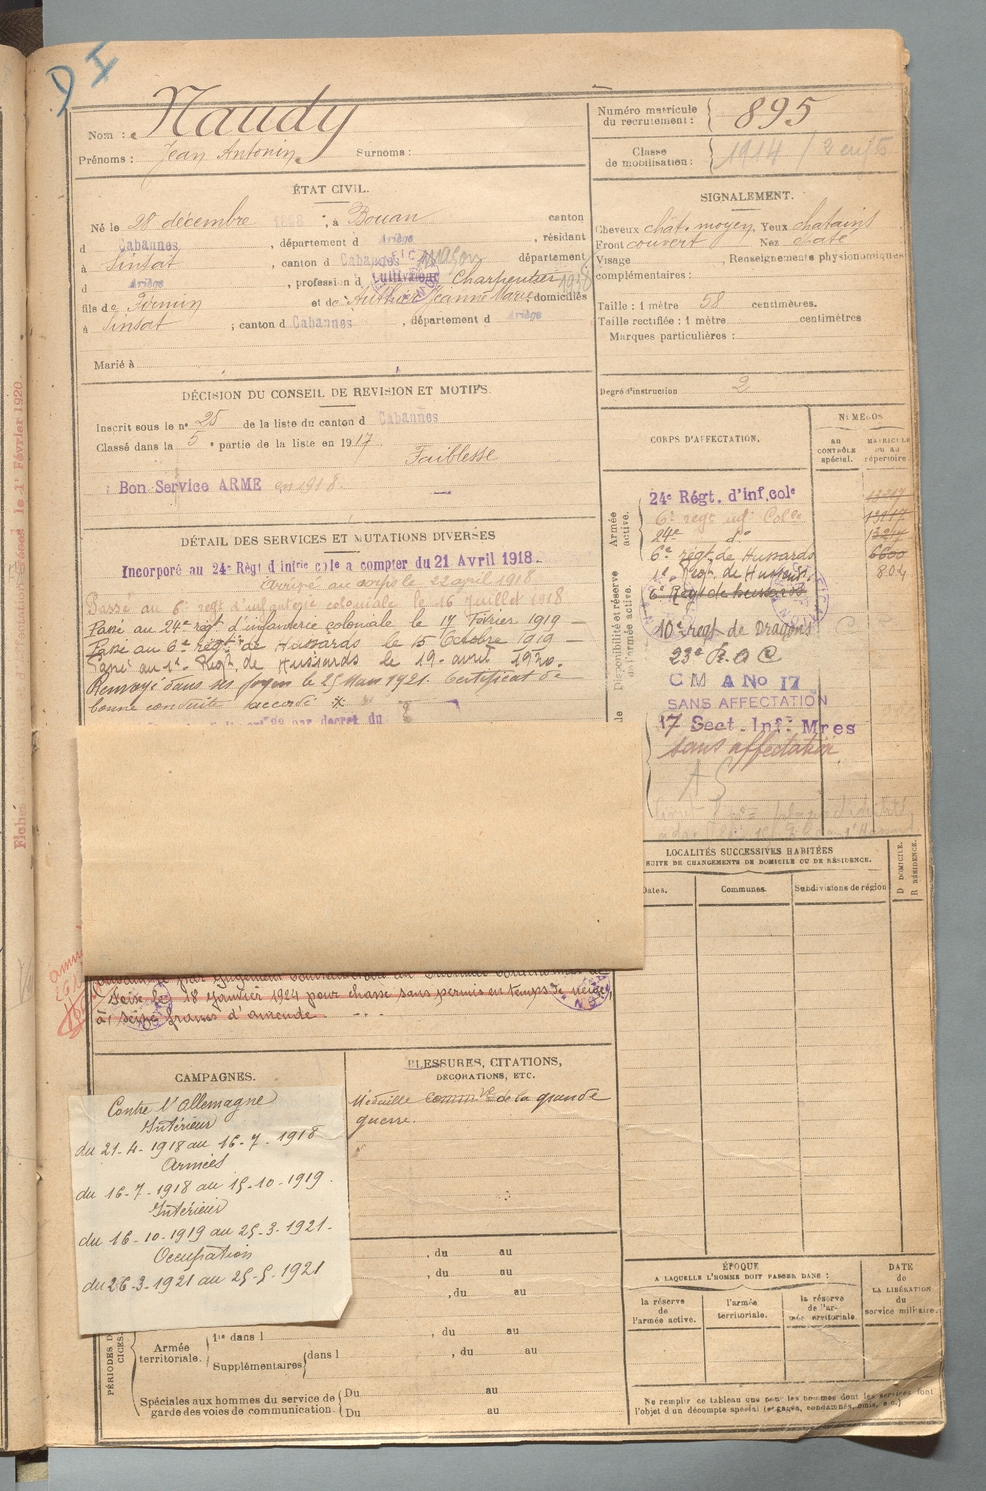 D I
Nom : Naudy
Prénoms : Jean Antonin Surnoms :
Numéro matricule du recrutement : 895
Classe de mobilisation : 1914 /
ÉTAT CIVIL.
Né le 28 décembre 1898, à Bouan canton
d Cabannes, département d Ariège, résidant
à Sinsat, canton d Cabannes département
d Ariège, profession d Cultivateur Charpentier Maçon
fils de Firmin et de Jeanne Marie domiciliés
à Sinsat ; canton d Cabannes, département d Ariège
Marié à
SIGNALEMENT.
Cheveux chat. moyen Yeux chatains
Front couvert Nez
Visage , Renseignements physionomiques
complémentaires :
Taille : 1 mètre 58 centimètres.
Taille rectifiée : 1 mètre centimètres
Marques particulières :
Degré d'instruction 2
DÉCISION DU CONSEIL DE REVISION ET MOTIFS.
Inscrit sous le n° 25 de la liste du canton d Cabannes
Classé dans la 5e partie de la liste en 1917
Faiblesse
Bon Service ARME en 1918.
DÉTAIL DES SERVICES ET MUTATIONS DIVERSES
Incorporé au 24e Régt d'infrie cole a compter du 21 Avril 1918.
Arrivé au corps le 22 avril 1918
Passé au 6e regt d'infanterie coloniale le 16 juillet 1918
Passé au 24e régt d'infanterie coloniale le 17 Février 1919 —
Passé au 6e régt de Hussards le 15 Octobre 1919 —
Passé au 1er Régt de Hussards le 19 avril 1920.
Renvoyé dans ses foyers le 25 Mars 1921. Certificat de
bonne conduite accordé
par decret du
CORPS D'AFFECTATION.
NUMÉROS
au CONTRÔLE spécial.
MATRICULE OU AU répertoire.
Armée active.
24e Régt. d'inf.cole
6e regt inf Cole 13217
24e do 13217
6e régt de Hussards 6600
1er Regt de Hussards 804
6e Régt de hussards
Disponibilité et réserve de l'armée active.
10e regt de Dragons
23e R.A.C
C M A No 17
SANS AFFECTATION
17 Sect. Inf. Mres
sans affectation
LOCALITÉS SUCCESSIVES HABITÉES
SUITE DE CHANGEMENTS DE DOMICILE OU DE RÉSIDENCE.
Dates.
Communes.
Subdivisions de région
D DOMICILE.
R RÉSIDENCE.
par jugement du Tribunal
Foix le 18 Janvier 1924 pour chasse sans permis en temps de neige,
à seize francs d'amende
CAMPAGNES.
Contre l'Allemagne
Intérieur
du 21-4-1918 au 16-7-1918
Armées
du 16-7-1918 au 15-10-1919.
Intérieur
du 16-10-1919 au 25-3-1921-
Occupation
du 26-3-1921 au 25-5-1921
BLESSURES, CITATIONS,
DÉCORATIONS, ETC.
Médaille commve de la grande
guerre.
, du au
, du au
, du au
Armée territoriale.
1re dans l , du au
Supplémentaires dans l , du au
Spéciales aux hommes du service de garde des voies de communication.
Du au
Du au
ÉPOQUE
A LAQUELLE L'HOMME DOIT PASSER DANS :
la réserve de l'armée active.
l'armée territoriale.
la réserve de l'armée territoriale.
DATE de LA LIBÉRATION du service militaire.
Ne remplir ce tableau que pour les hommes dont les services font
l'objet d'un décompte spécial (engagés, condamnés, omis, etc.)